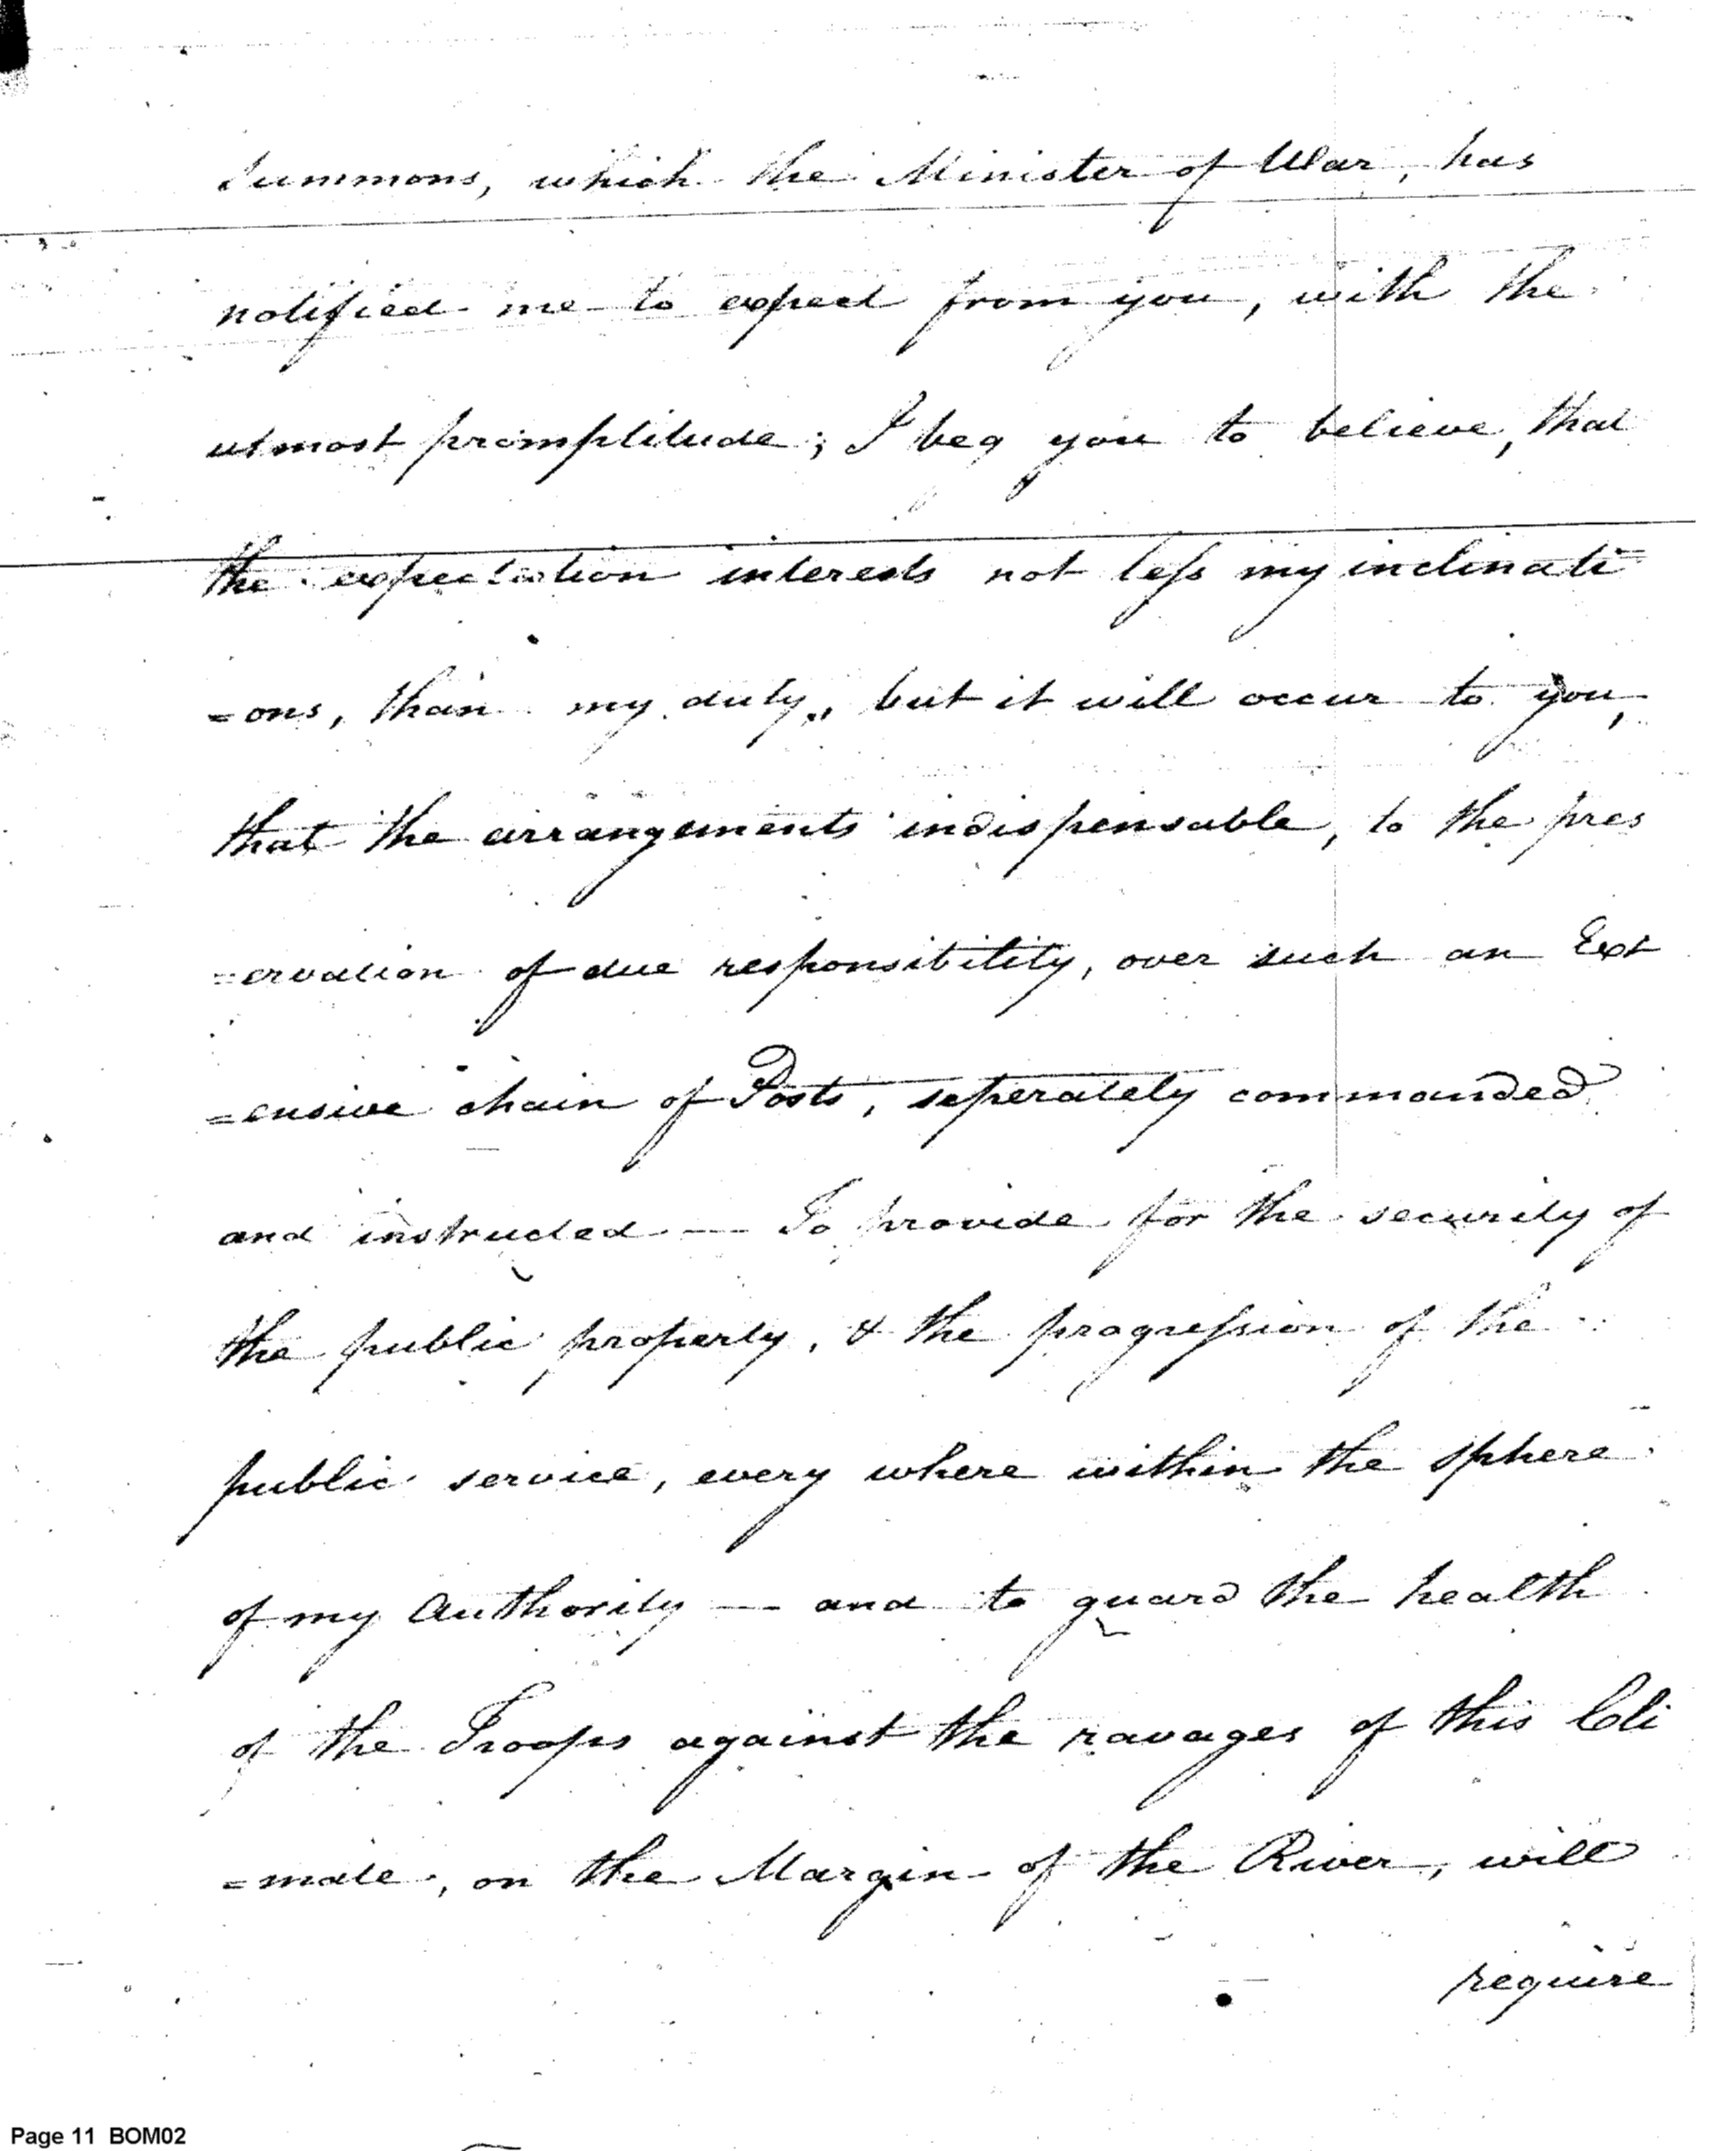 Summons, which the Minister of War, has
notified me to expect from you, with the
utmost promptitude; I beg you to believe, that
the expectation interests not less my inclinati=
=ons, than my duty, but it will occur to you,
that the arrangements indispensable, to the pres
=ervation of due responsibility, over such an Ext
=ensive chain of Posts, seperately commanded
and instructed — To provide for the security of
the public property, & the progression of the
public service, every where within the sphere
of my Authority — and to guard the health
of the Troops against the ravages of this Cli
=mate, on the Margin of the River, will
require
Page 11 BOM02